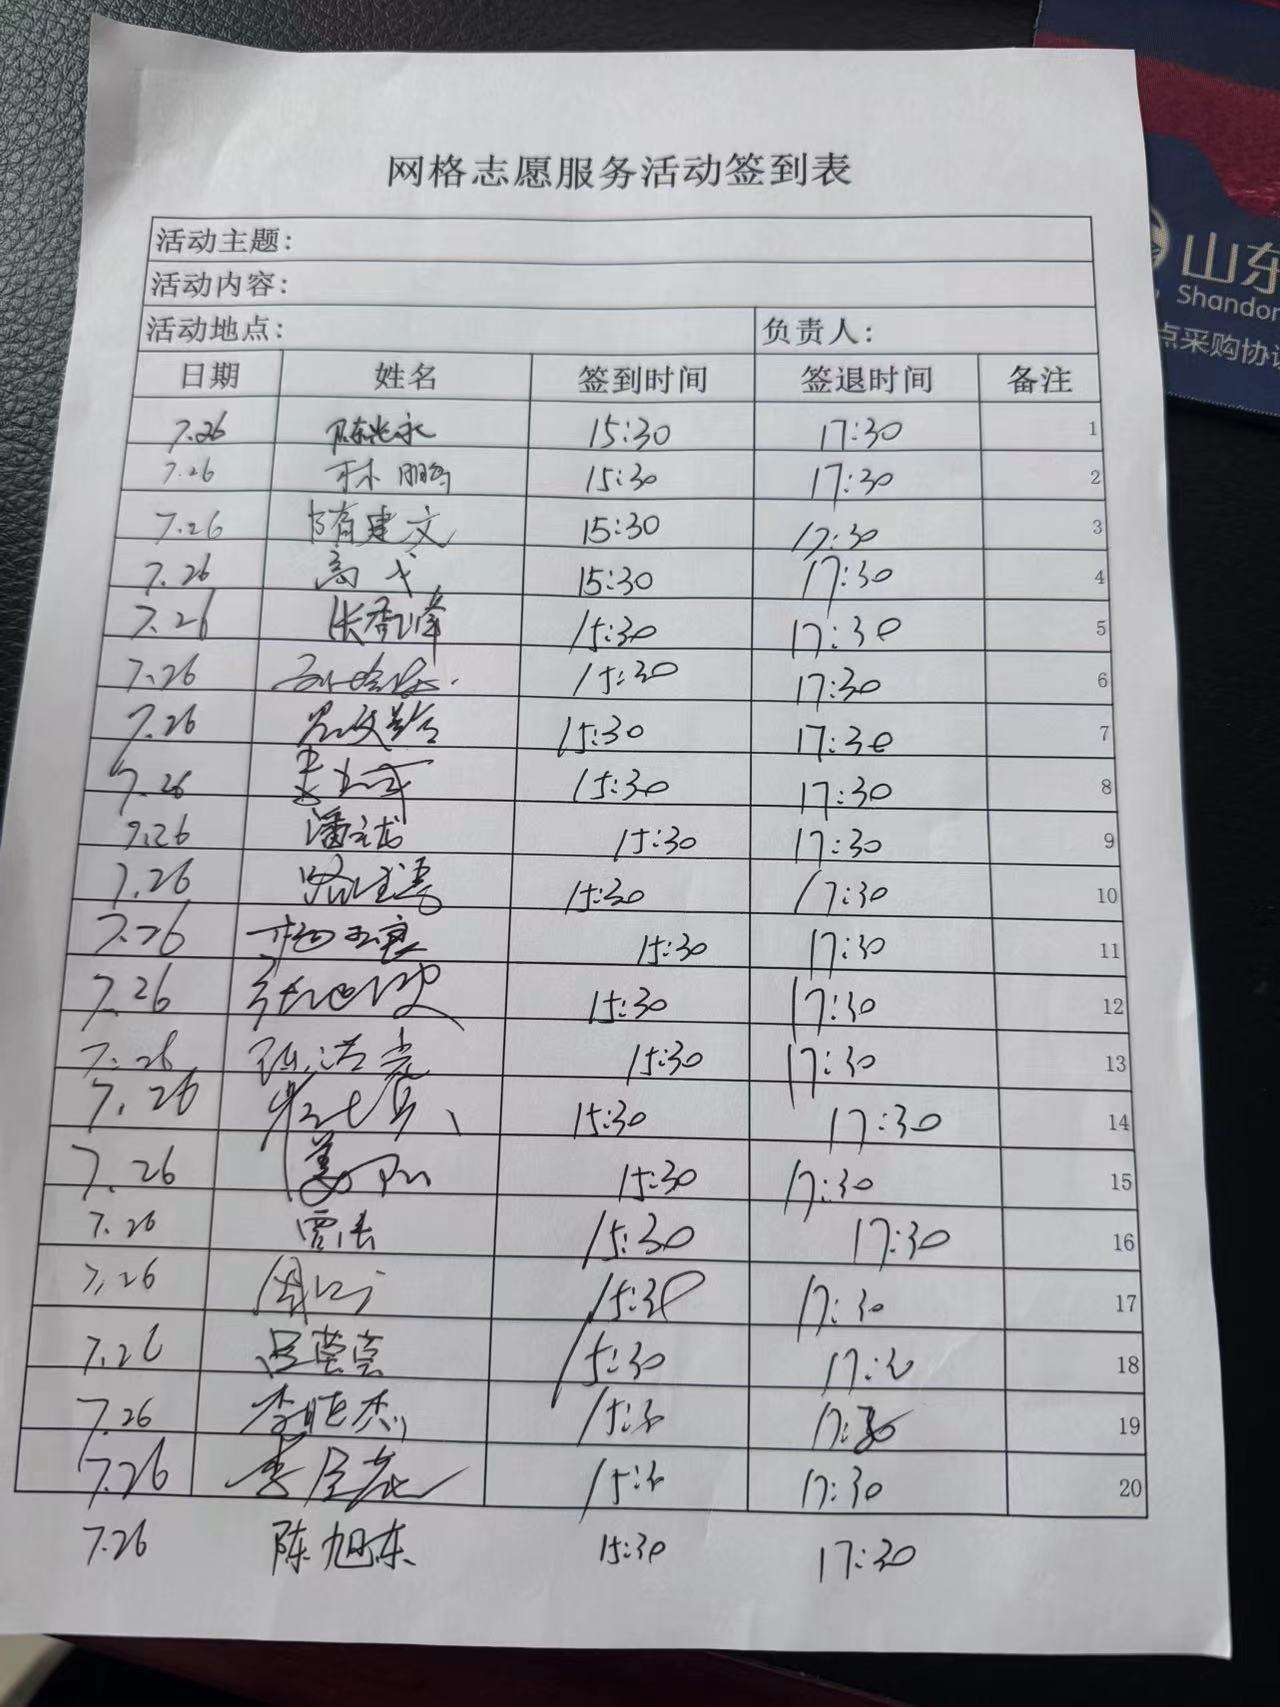 网格志愿服务活动签到表
活动主题：
活动内容：
活动地点： 负责人：
日期 姓名 签到时间 签退时间 备注
7.26 陈兆永 15:30 17:30 1
7.26 林鹏 15:30 17:30 2
7.26 隋建文 15:30 17:30 3
7.26 高 15:30 17:30 4
7.26 张 峰 15:30 17:30 5
7.26 15:30 17:30 6
7.26 15:30 17:30 7
7.26 15:30 17:30 8
7.26 潘 龙 15:30 17:30 9
7.26 15:30 17:30 10
7.26 杨 15:30 17:30 11
7.26 张 15:30 17:30 12
7.26 15:30 17:30 13
7.26 15:30 17:30 14
7.26 姜 15:30 17:30 15
7.26 贾浩 15:30 17:30 16
7.26 周 15:30 17:30 17
7.26 吕莹莹 15:30 17:30 18
7.26 李胜杰 15:30 17:30 19
7.26 李 15:30 17:30 20
7.26 陈旭东 15:30 17:30
山东
Shandon
点采购协议